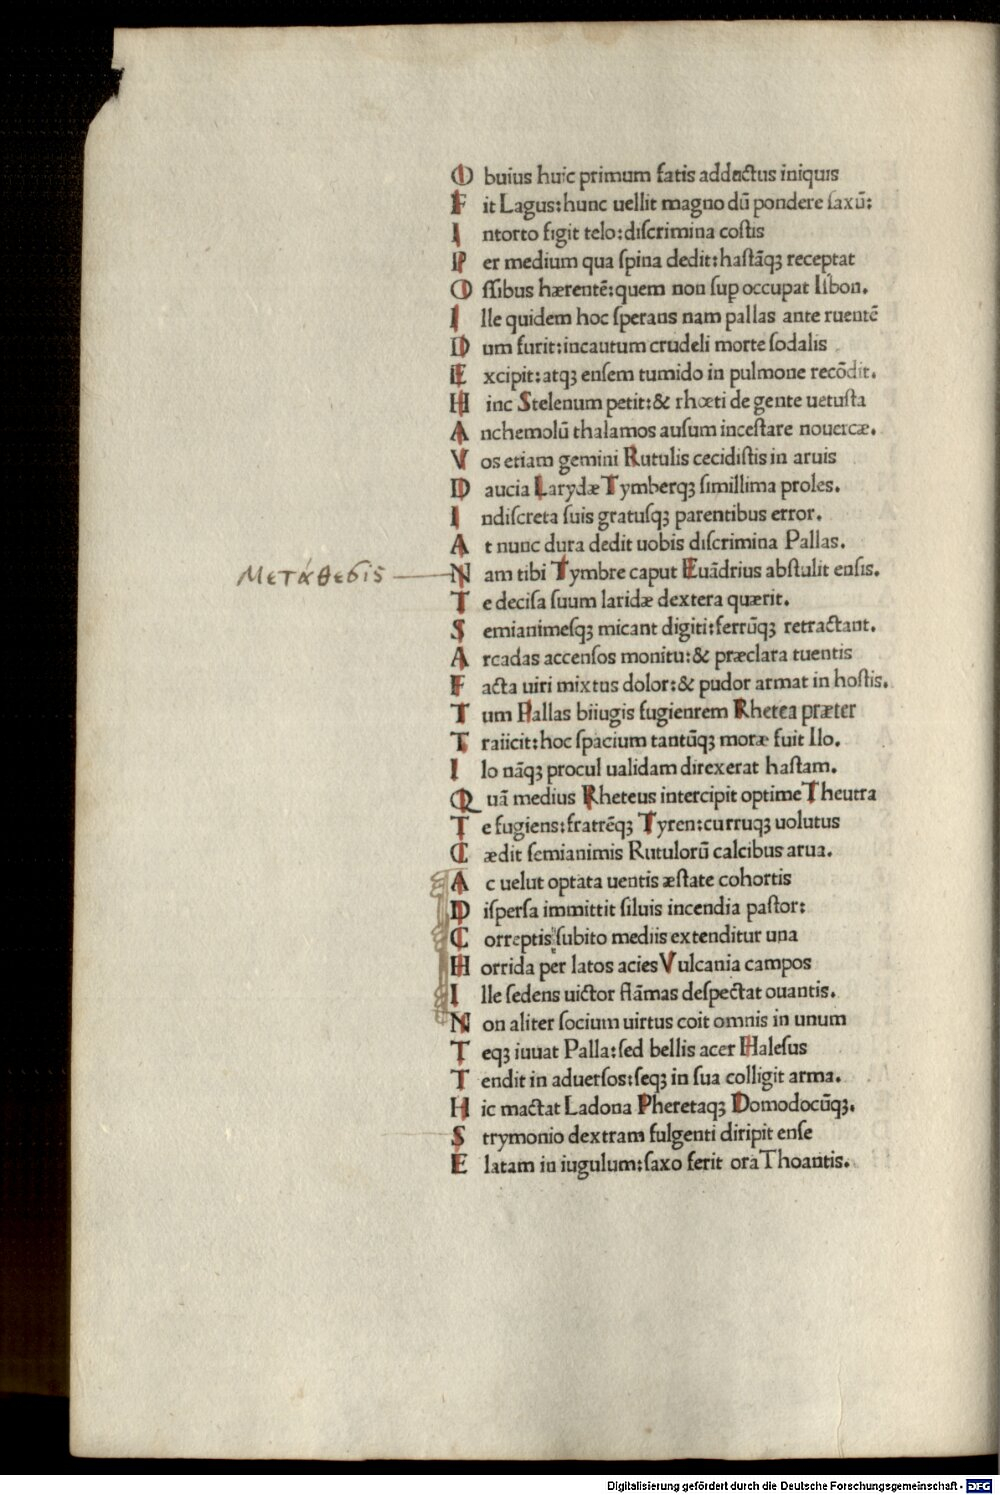 Obuius huic primum fatis adductus iniquis
Fit Lagus:hunc uellit magno dū pondere ſaxū:
Intorto figit telo:diſcrimina coſtis
Per medium qua ſpina dedit:haſtāqꝫ receptat
Oſſibus hærentē:quem non ſup occupat Iſbon.
Ille quidem hoc ſperans nam pallas ante ruentē
Dum furit:incautum crudeli morte ſodalis
Excipit:atqꝫ enſem tumido in pulmone recōdit.
Hinc Stelenum petit:& rhœti de gente uetuſta
Anchemolū thalamos auſum inceſtare nouercæ.
Vos etiam gemini Rutulis cecidiſtis in aruis
Daucia Larydæ Tymberqꝫ ſimillima proles.
Indiſcreta ſuis gratuſqꝫ parentibus error.
At nunc dura dedit uobis diſcrimina Pallas.
Μετάθεσις Nam tibi Tymbre caput Euādrius abſtulit enſis.
Te deciſa ſuum laridæ dextera quærit.
Semianimeſqꝫ micant digiti:ferrūqꝫ retractant.
Arcadas accenſos monitu:& præclara tuentis
Facta uiri mixtus dolor:& pudor armat in hoſtis.
Tum Pallas biiugis fugienrem Rhetea præter
Traiicit:hoc ſpacium tantūqꝫ moræ fuit Ilo.
Ilo nāqꝫ procul ualidam direxerat haſtam.
Quā medius Rheteus intercipit optime Theutra
Te fugiens:fratrēqꝫ Tyren:curruqꝫ uolutus
Cædit ſemianimis Rutulorū calcibus arua.
Ac uelut optata uentis æſtate cohortis
Diſperſa immittit ſiluis incendia paſtor:
Correptis ſubito mediis extenditur una
Horrida per latos acies Vulcania campos
Ille ſedens uictor flāmas deſpectat ouantis.
Non aliter ſocium uirtus coit omnis in unum
Teqꝫ iuuat Palla:ſed bellis acer Haleſus
Tendit in aduerſos:ſeqꝫ in ſua colligit arma.
Hic mactat Ladona Pheretaqꝫ Domodocūqꝫ.
Strymonio dextram fulgenti diripit enſe
Elatam in iugulum:ſaxo ferit ora Thoantis.
Digitalisierung gefördert durch die Deutsche Forschungsgemeinschaft - DFG